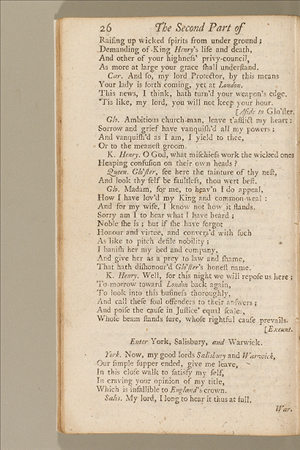 26 The Second Part of
Raiſing up wicked ſpirits from under ground;
Demanding of King Henry's life and death,
And other of your highneſs' privy-council,
As more at large your grace ſhall underſtand.
Car. And ſo, my lord Protector, by this means
Your lady is forth coming, yet at London.
This news, I think, hath turn'd your weapon's edge.
'Tis like, my lord, you will not keep your hour.
[Aſide to Glo'ſter.
Glo. Ambitious church-man, leave t'afflict my heart:
Sorrow and grief have vanquiſh'd all my powers;
And vanquiſh'd as I am, I yield to thee,
Or to the meaneſt groom.
K. Henry. O God, what miſchiefs work the wicked ones
Heaping confuſion on their own heads?
Queen. Glo'ſter, ſee here the tainture of thy neſt,
And look thy ſelf be faultleſs, thou wert beſt.
Glo. Madam, for me, to heav'n I do appeal,
How I have lov'd my King and common-weal:
And for my wife, I know not how it ſtands.
Sorry am I to hear what I have heard;
Noble ſhe is; but if ſhe have forgot
Honour and virtue, and convers'd with ſuch
As like to pitch defile nobility;
I baniſh her my bed and company,
And give her as a prey to law and ſhame,
That hath diſhonour'd Glo'ſter's honeſt name.
K. Henry. Well, for this night we will repoſe us here;
To-morrow toward London back again,
To look into this buſineſs thoroughly,
And call theſe foul offenders to their anſwers;
And poiſe the cauſe in Juſtice' equal ſcales,
Whoſe beam ſtands ſure, whoſe rightful cauſe prevails.
[Exeunt.
Enter York, Salisbury, and Warwick.
York. Now, my good lords Salisbury and Warwick,
Our ſimple ſupper ended, give me leave,
In this cloſe walk to ſatisfy my ſelf,
In craving your opinion of my title,
Which is infallible to England's crown.
Salis. My lord, I long to hear it thus at full.
War.